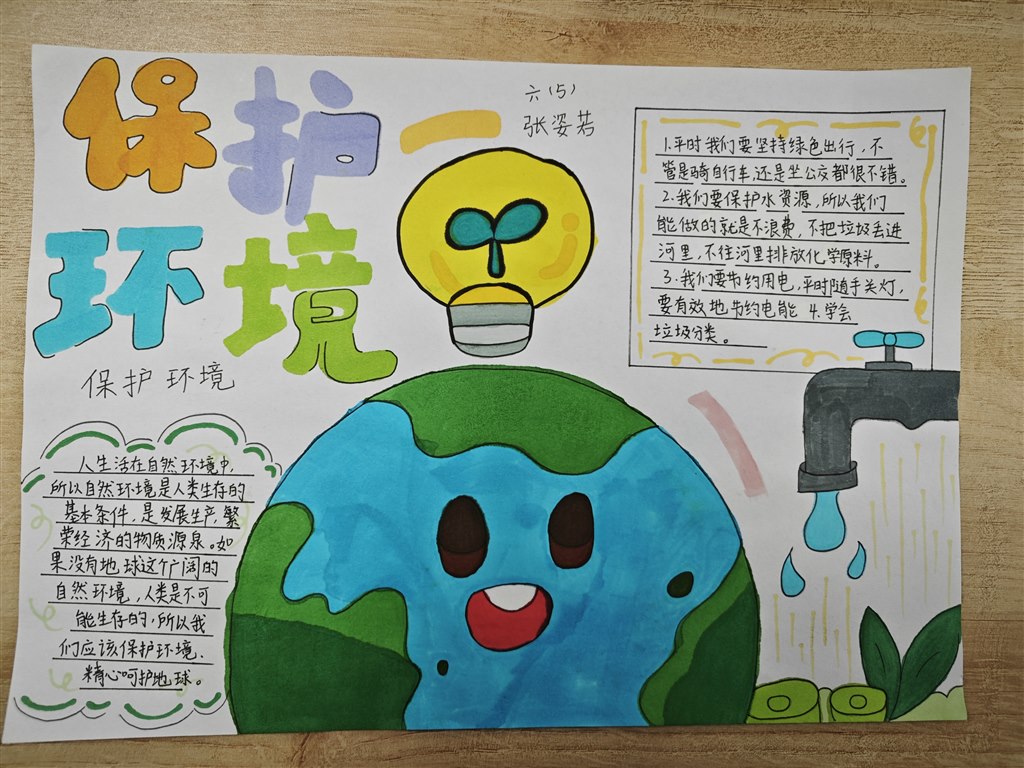 保护
环境
保护环境
六(5)
张姿若
1.平时我们要坚持绿色出行，不
管是骑自行车，还是坐公交都很不错。
2.我们要保护水资源，所以我们
能做的就是不浪费，不把垃圾丢进
河里，不往河里排放化学原料。
3.我们要节约用电，平时随手关灯，
要有效地节约电能 4.学会
垃圾分类。
人生活在自然环境中，
所以自然环境是人类生存的
基本条件，是发展生产，繁
荣经济的物质源泉。如
果没有地球这个广阔的
自然环境，人类是不可
能生存的，所以我
们应该保护环境、
精心呵护地球。